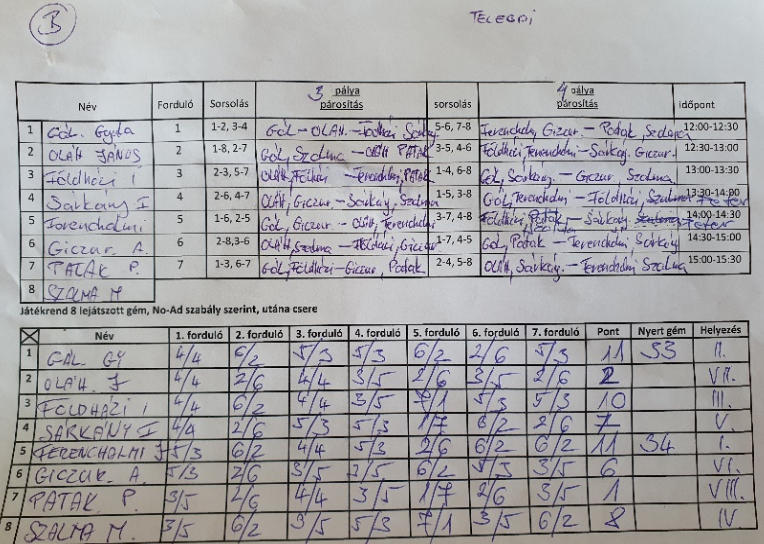 B
TELEGDI
Név Forduló Sorsolás 3 pálya párosítás sorsolás 4 pálya párosítás időpont
1 Gál. Gyula 1 1-2, 3-4 Gál - OLÁH. - Földházi, Sárkány 5-6, 7-8 Ferencholmi, Giczur. - Patak, Szalma 12:00-12:30
2 OLÁH JÁNOS 2 1-8, 2-7 Gál, Szalma - OLÁH PATAK 3-5, 4-6 Földházi, Ferencholmi - Sárkány. Giczur. 12:30-13:00
3 Földházi I 3 2-3, 5-7 OLÁH, Földházi - Ferencholmi, PATAK 1-4, 6-8 Gál, Sárkány. - Giczur, Szalma 13:00-13:30
4 Sárkány I 4 2-6, 4-7 OLÁH, Giczur - Sárkány, Patak 1-5, 3-8 Gál, Ferencholmi - Földházi, Szalma 13:30-14:00
5 Ferencholmi 5 1-6, 2-5 Gál, Giczur. - OLÁH, Ferencholmi 3-7, 4-8 Földházi Patak - Sárkány 14:00-14:30
6 Giczur A. 6 2-8, 3-6 OLÁH, Szalma - Földházi, Giczur 1-7, 4-5 Gál, Patak - Ferencholmi, Sárkány 14:30-15:00
7 PATAK P. 7 1-3, 6-7 Gál, Földházi - Giczur, Patak 2-4, 5-8 OLÁH, Sárkány. - Ferencholmi Szalma 15:00-15:30
8 SZALMA M
Játékrend 8 lejátszott gém, No-Ad szabály szerint, utána csere
Név 1. forduló 2. forduló 3. forduló 4. forduló 5. forduló 6. forduló 7. forduló Pont Nyert gém Helyezés
1 GÁL. GY 4/4 6/2 5/3 5/3 6/2 2/6 5/3 11 33 II.
2 OLÁH. J 4/4 2/6 4/4 3/5 2/6 3/5 2/6 2 VII.
3 FÖLDHÁZI I 4/4 6/2 4/4 3/5 7/1 5/3 5/3 10 III.
4 SÁRKÁNY I 4/4 2/6 5/3 5/3 1/7 6/2 2/6 7 V.
5 FERENCHOLMI J 5/3 6/2 4/4 5/3 2/6 6/2 6/2 11 34 I.
6 GICZUR. A. 5/3 2/6 3/5 3/5 6/2 5/3 3/5 6 VI.
7 PATAK P. 3/5 2/6 4/4 3/5 1/7 2/6 3/5 1 VIII.
8 SZALMA M. 3/5 6/2 3/5 5/3 7/1 3/5 6/2 8 IV